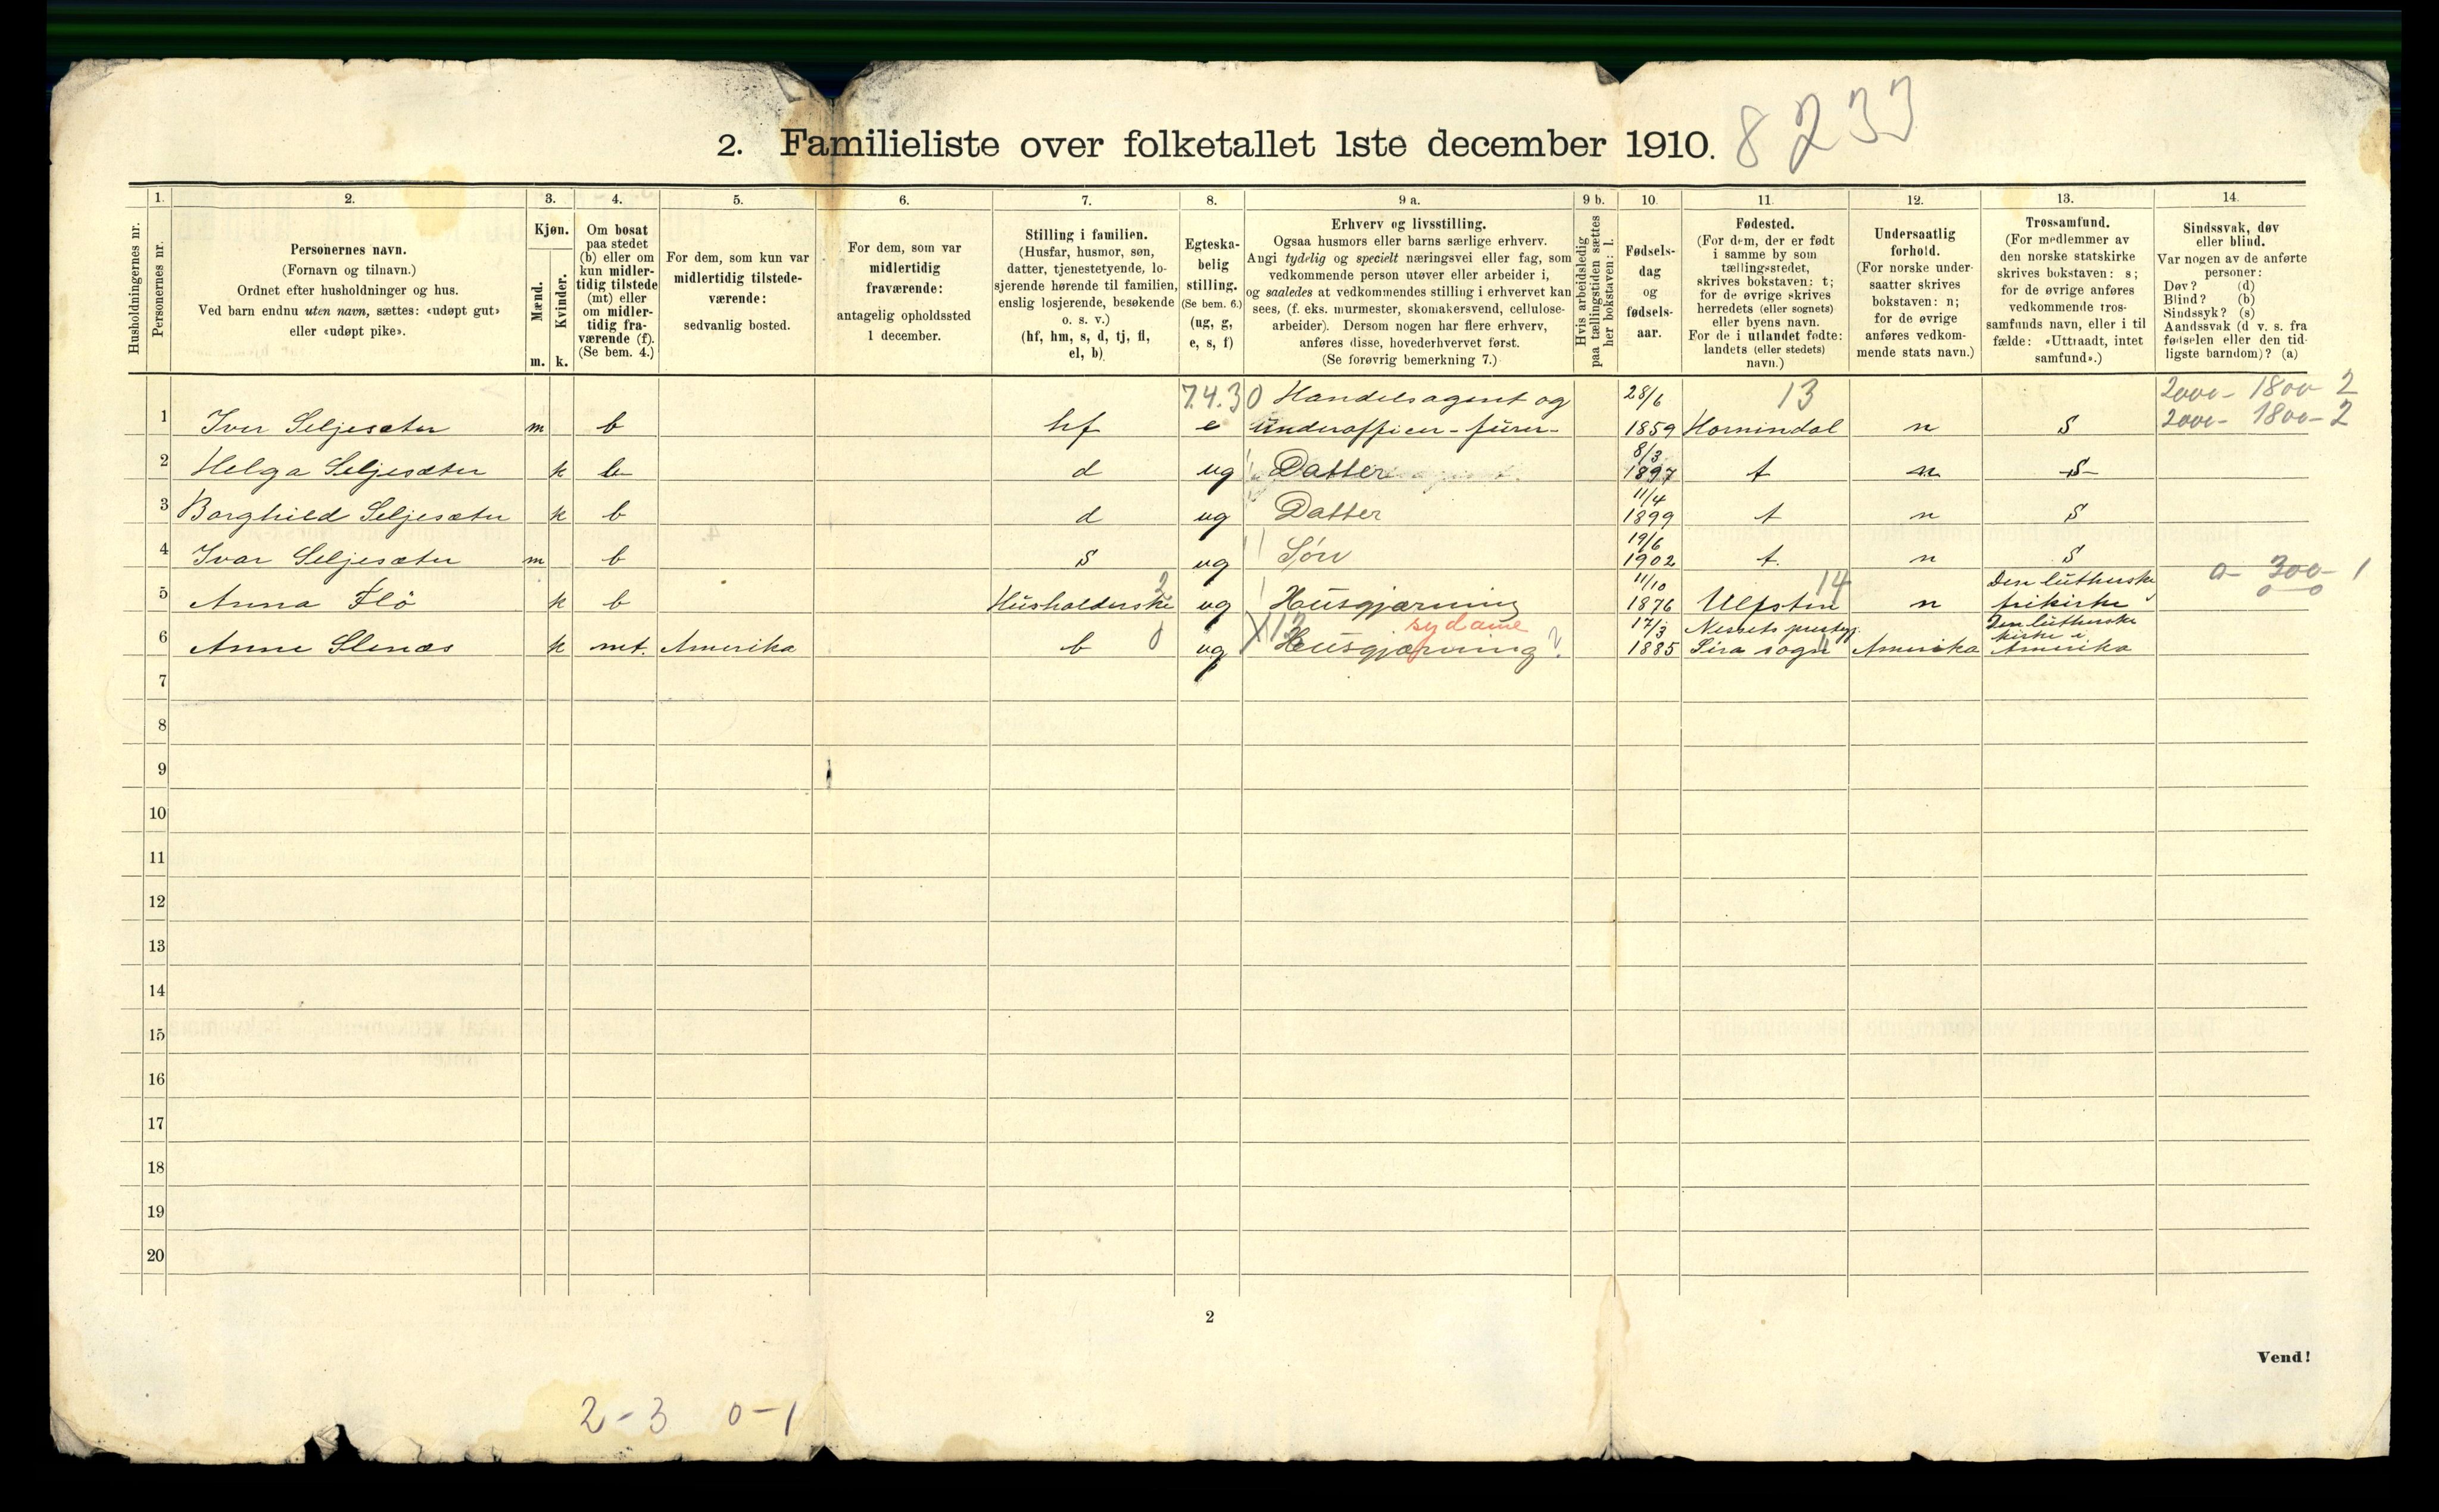 2. Familieliste over folketallet 1ste december 1910. 8233
1. 2. 3. 4. 5. 6. 7. 8. 9 a. 9 b. 10. 11. 12. 13. 14.
Husholdningernes nr.
Personernes nr.
Personernes navn.
(Fornavn og tilnavn.)
Ordnet efter husholdninger og hus.
Ved barn endnu uten navn, sættes: «udøpt gut»
eller «udøpt pike».
Kjøn.
Mænd.
m.
Kvinder.
k.
Om bosat
paa stedet
(b) eller om
kun midler-
tidig tilstede
(mt) eller
om midler-
tidig fra-
værende (f).
(Se bem. 4.)
For dem, som kun var
midlertidig tilstede-
værende:
sedvanlig bosted.
For dem, som var
midlertidig
fraværende:
antagelig opholdssted
1 december.
Stilling i familien.
(Husfar, husmor, søn,
datter, tjenestetyende, lo-
sjerende hørende til familien,
enslig losjerende, besøkende
o. s. v.)
(hf, hm, s, d, tj, fl,
el, b)
Egteska-
belig
stilling.
(Se bem. 6.)
(ug, g,
e, s, f)
Erhverv og livsstilling.
Ogsaa husmors eller barns særlige erhverv.
Angi tydelig og specielt næringsvei eller fag, som
vedkommende person utøver eller arbeider i,
og saaledes at vedkommendes stilling i erhvervet kan
sees, (f. eks. murmester, skomakersvend, cellulose-
arbeider). Dersom nogen har flere erhverv,
anføres disse, hovederhvervet først.
(Se forøvrig bemerkning 7.)
Hvis arbeidsledig
paa tællingstiden sættes
her bokstaven: l.
Fødsels-
dag
og
fødsels-
aar.
Fødested.
(For dem, der er født
i samme by som
tællingsstedet,
skrives bokstaven: t;
for de øvrige skrives
herredets (eller sognets)
eller byens navn.
For de i utlandet fødte:
landets (eller stedets)
navn.)
Undersaatlig
forhold.
(For norske under-
saatter skrives
bokstaven: n;
for de øvrige
anføres vedkom-
mende stats navn.)
Trossamfund.
(For medlemmer av
den norske statskirke
skrives bokstaven: s;
for de øvrige anføres
vedkommende tros-
samfunds navn, eller i til
fælde: «Uttraadt, intet
samfund».)
Sindssvak, døv
eller blind.
Var nogen av de anførte
personer:
Døv? (d)
Blind? (b)
Sindssyk? (s)
Aandssvak (d v. s. fra
fødselen eller den tid-
ligste barndom)? (a)
7.4.30 Handelsagent og 28/6 13 2000- 1800- 2
1 Iver Seljesæter m b hf e underofficer-furer- 1859 Hornindal n S 2000- 1800- 2
8/3
2 Helga Seljesæter k b d ug Datter 1897 t n S
11/4
3 Borghild Seljesæter k b d ug Datter 1899 t n S
19/6
4 Ivar Seljesæter m b s ug Søn 1902 t. n S
2 11/10 14 Den lutherske 0- 300- 1
5 Anna Flö k b Husholderske ug Husgjærning 1876 Ulfsten n frikirke 0-0
0 X12 sydame 17/3 Nessets prestegj. Den lutherske
kirke i
6 Anne Slenæs k mt. Amerika b ug Husgjærning? 1885 Sira sogn Amerika Amerika
7
8
9
10
11
12
13
14
15
16
17
18
19
20
2
Vend!
2-3 0-1